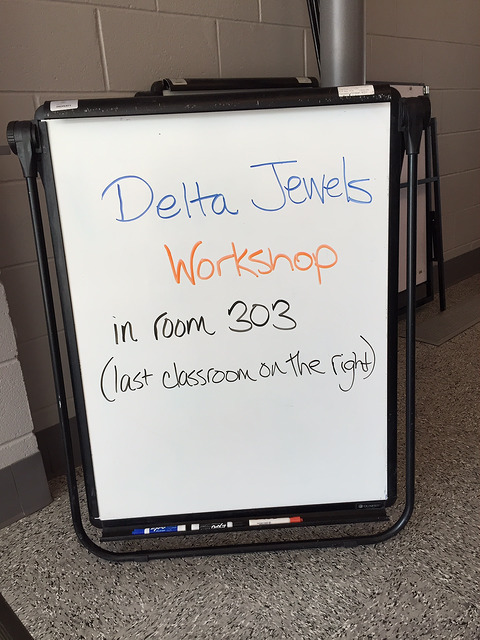 Delta Jewels
Workshop
in room 303
(last classroom on the right)